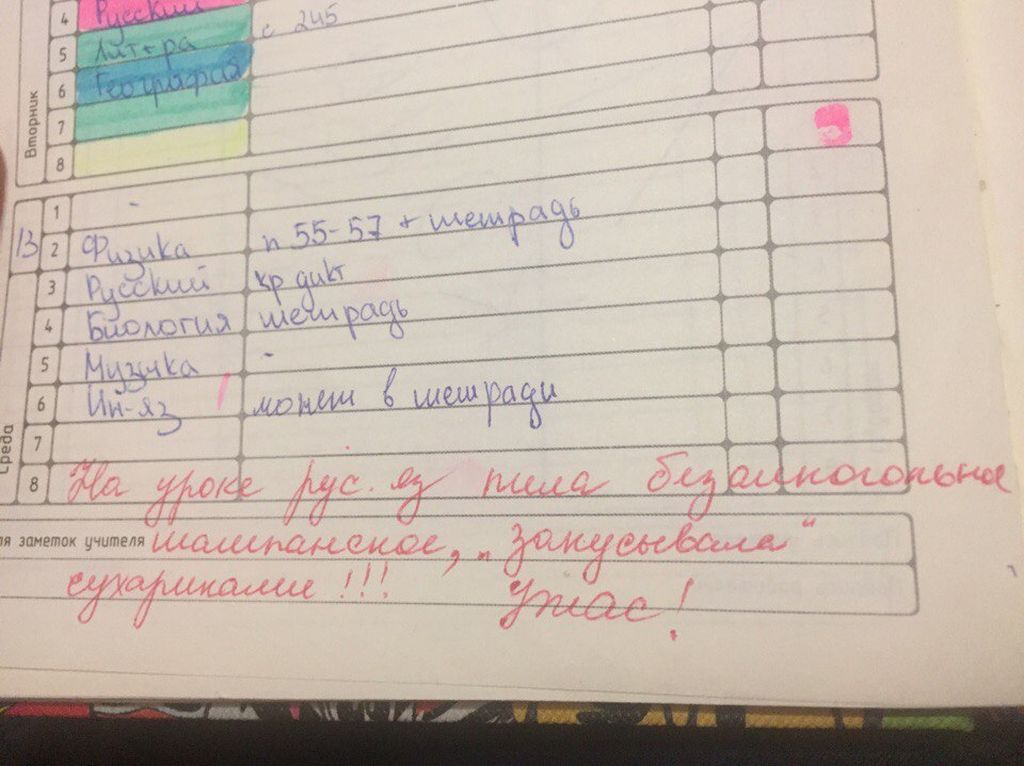 Вторник
4 Русский с 245
5 Лит-ра
6 География
7
8
Среда
13
1 -
2 Физика п 55-57 + тетрадь
3 Русский кр дикт
4 Биология тетрадь
5 Музыка -
6 Ин-яз может в тетради
7
8 На уроке рус. яз пила безалкогольное
ля заметок учителя шампанское, „закусывала“
сухариками!!! Ужас!